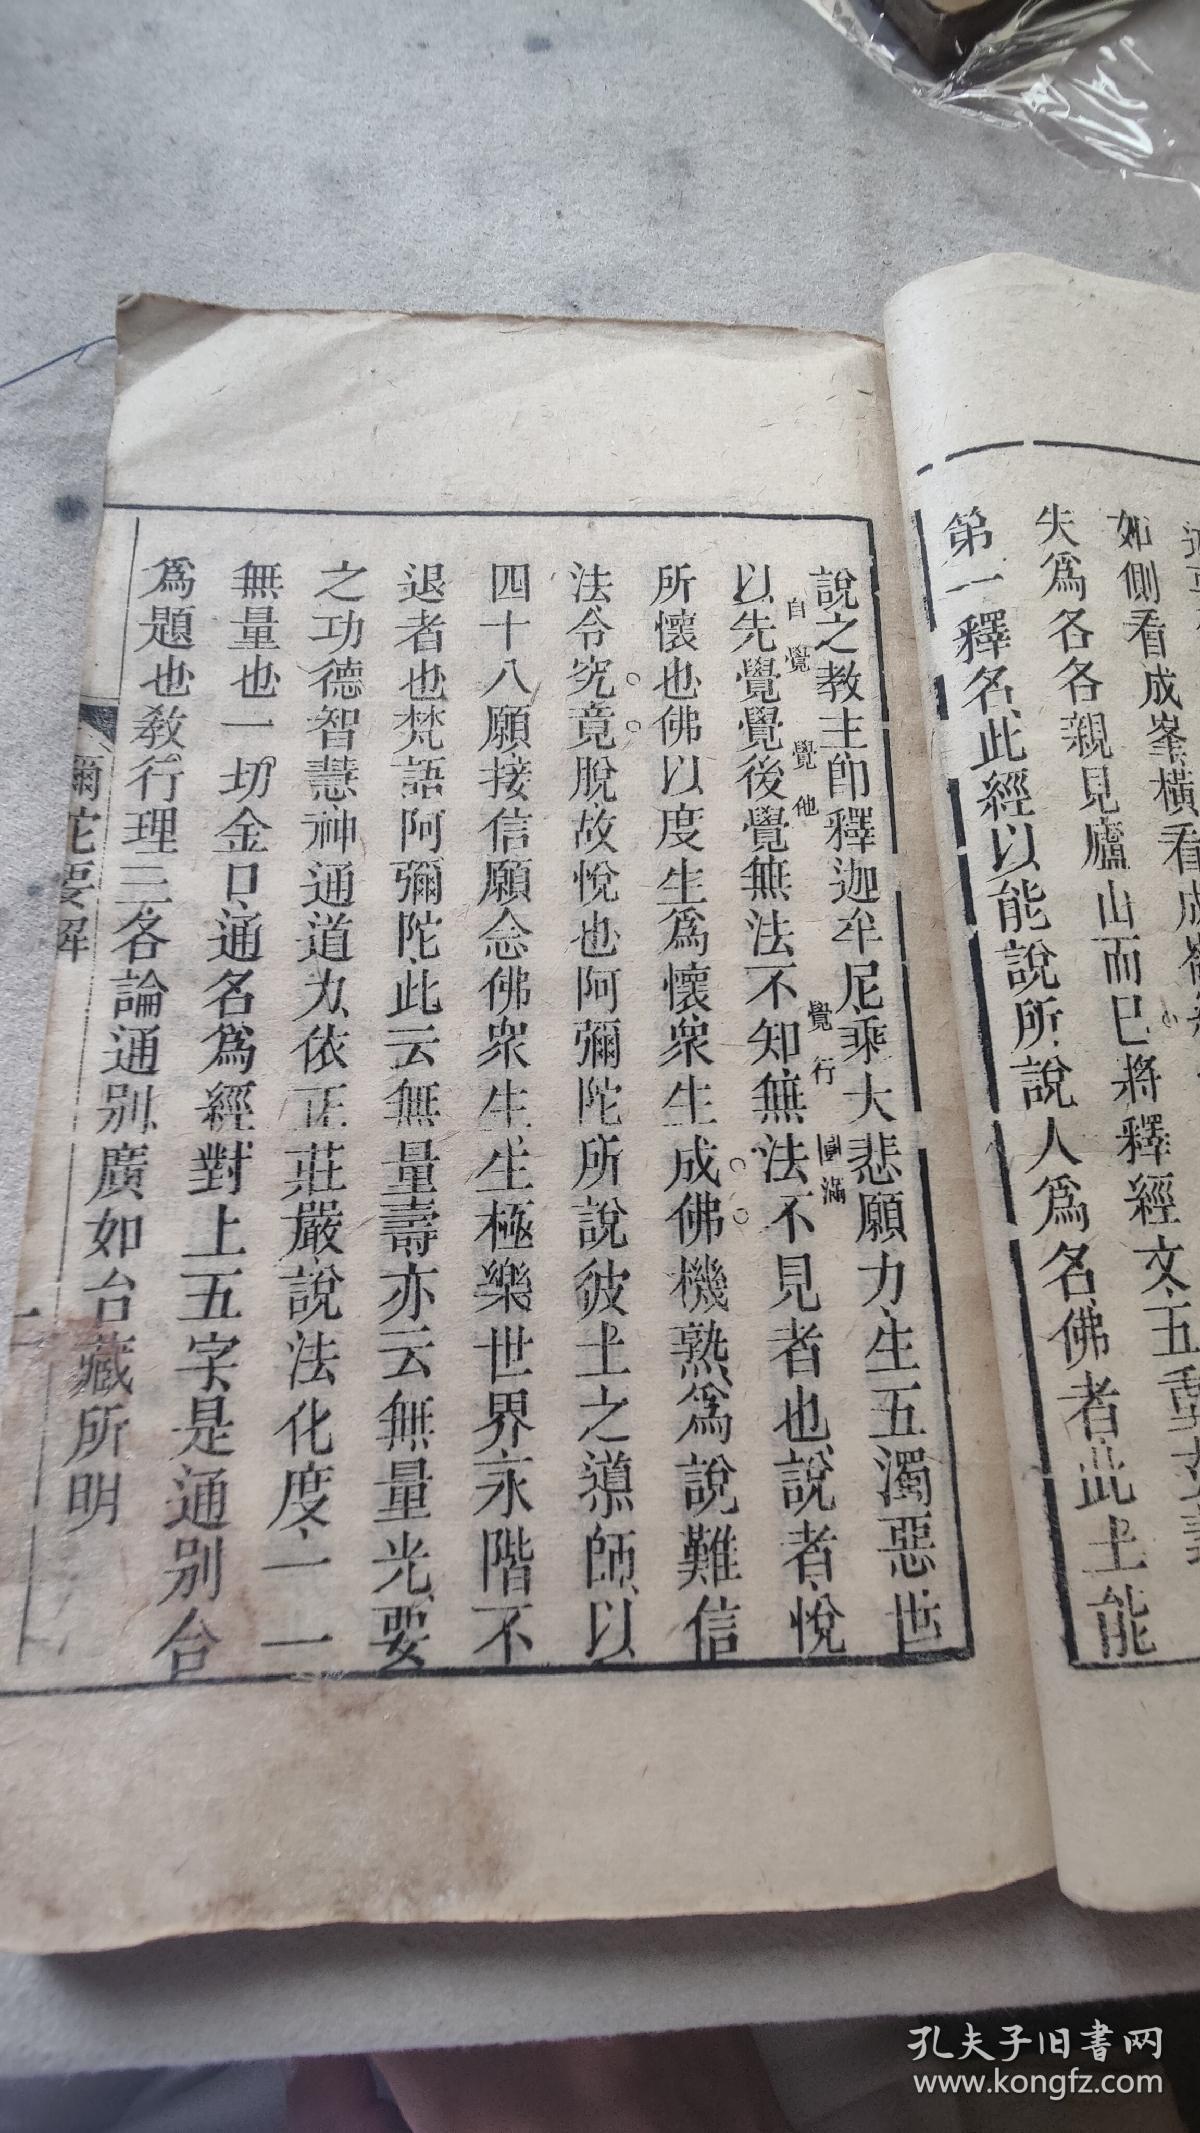 如側看成峯橫看成嶺
失爲各各親見廬山而已將釋經文五重玄義
第一釋名此經以能說所說人爲名佛者此土能
說之教主卽釋迦牟尼乘大悲願力生五濁惡世
以先覺覺後覺無法不知無法不見者也說者悅
自覺 覺他 覺行 圓滿
所懷也佛以度生爲懷衆生成佛機熟爲說難信
法令究竟脫故悅也阿彌陀所說彼土之導師以
四十八願接信願念佛衆生生極樂世界永階不
退者也梵語阿彌陀此云無量壽亦云無量光要
之功德智慧神通道力依正莊嚴說法化度一一
無量也一切金口通名爲經對上五字是通别合
爲題也教行理三各論通别廣如台藏所明
彌陀要解
二
孔夫子旧書网
www.kongfz.com